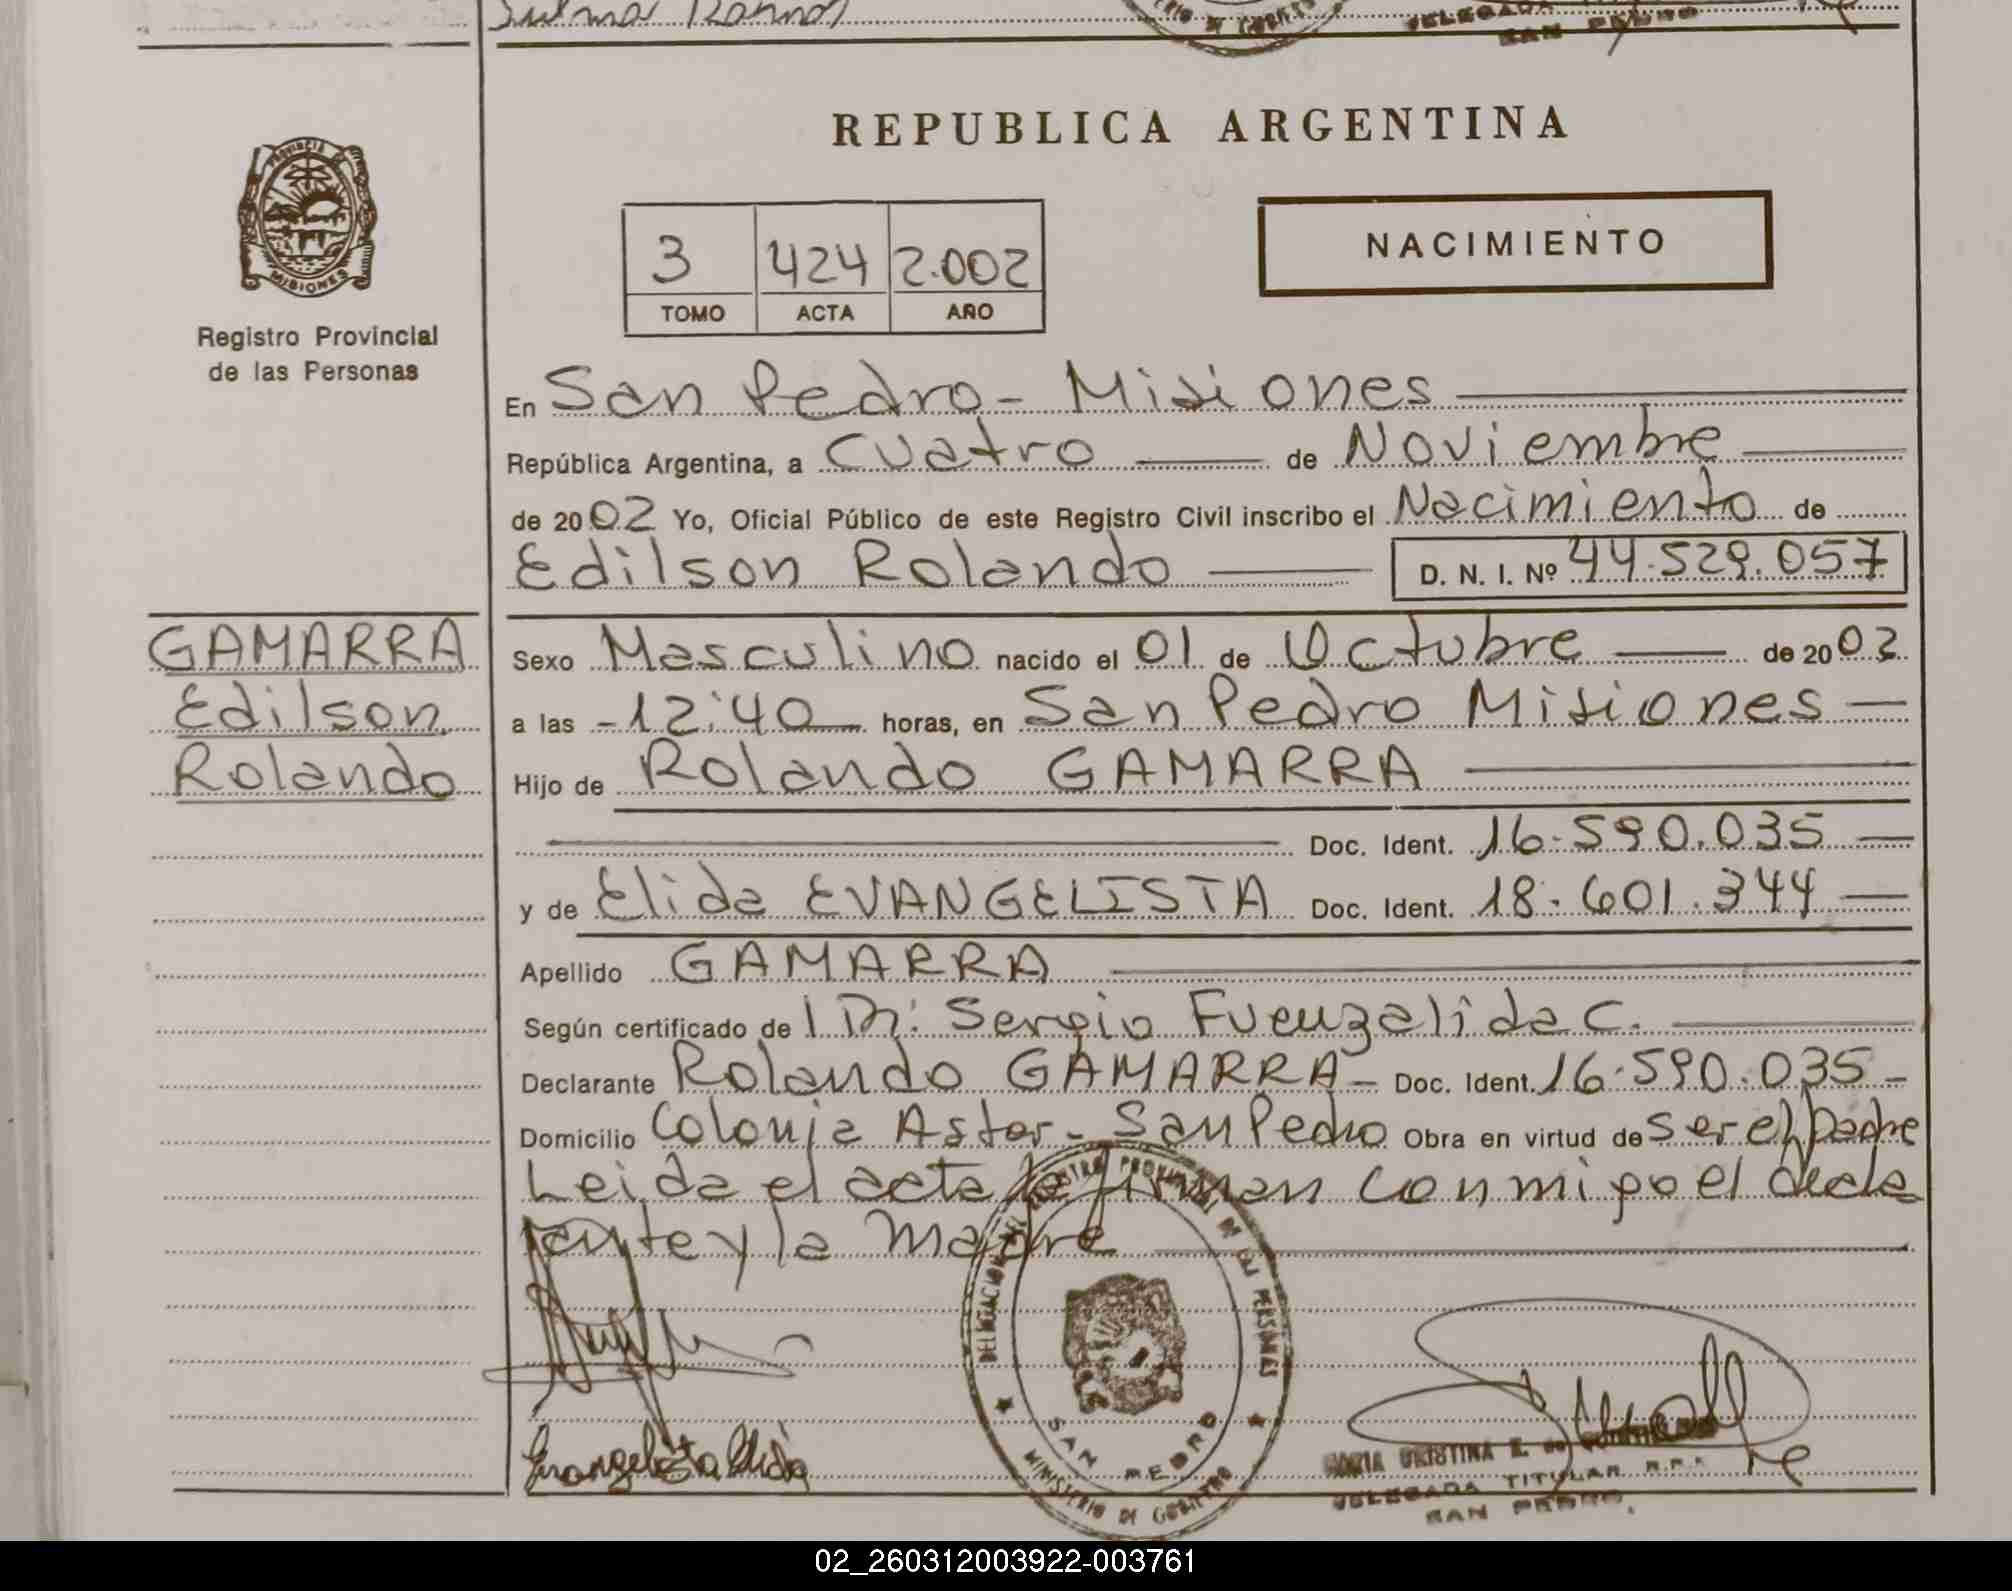 DELEGADA
SAN PEDRO
REPUBLICA ARGENTINA
PROVINCIA DE
MISIONES
Registro Provincial
de las Personas
3 424 2.002
TOMO ACTA AÑO
NACIMIENTO
En San Pedro - Misiones
República Argentina, a Cuatro de Noviembre
de 2002 Yo, Oficial Público de este Registro Civil inscribo el Nacimiento de
Edilson Rolando D. N. I. Nº 44.529.057
GAMARRA
Edilson
Rolando
Sexo Masculino nacido el 01 de Octubre de 2002
a las - 12:40 horas, en San Pedro Misiones
Hijo de Rolando GAMARRA
Doc. Ident. 16.590.035
y de Elida EVANGELISTA Doc. Ident. 18.601.344
Apellido GAMARRA
Según certificado de Dr. Sergio Fuenzalida C.
Declarante Rolando GAMARRA - Doc. Ident. 16.590.035 -
Domicilio Colonia Astor - San Pedro Obra en virtud de ser el padre
Leida el acta la firman conmigo el decla
rante y la Madre
DELEGACION DEL REGISTRO PROVINCIAL DE LAS PERSONAS
SAN PEDRO
MINISTERIO DE GOBIERNO
Evangelista Elida
MARIA CRISTINA E. de
DELEGADA TITULAR R.P.P.
SAN PEDRO
02_260312003922-003761